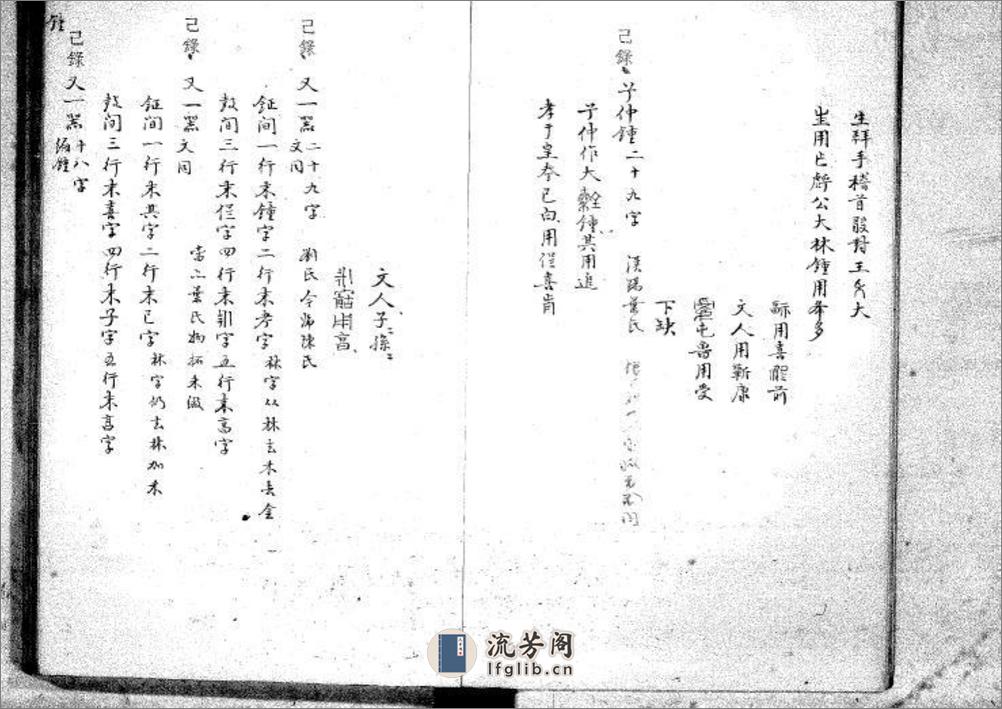 生拜手稽首敢對王休大
生用乍𩰬公大林鐘用奉多
用喜侃前
文人用蘄康
屯魯用受
下缺
己錄 子仲鐘二十九字 漢陽葉氏
子仲作大鐘其用追
孝于皇考己白用侃喜前
文人子二孫二
永寶用享
己錄 又一器二十九字 文同 劉氏今歸陳氏
鉦间一行末鐘字二行末孝字 林字从林去木去金
鼓间三行末侃字四行末永字五行末享字
己錄 又一器文同 葉氏物拓未償
鉦间一行末其字二行末己字 林字仍去林加木
鼓间三行末喜字四行末子字五行末享字
己錄 又一器十八字 編鐘
鐘
流芳阁
lfglib.cn